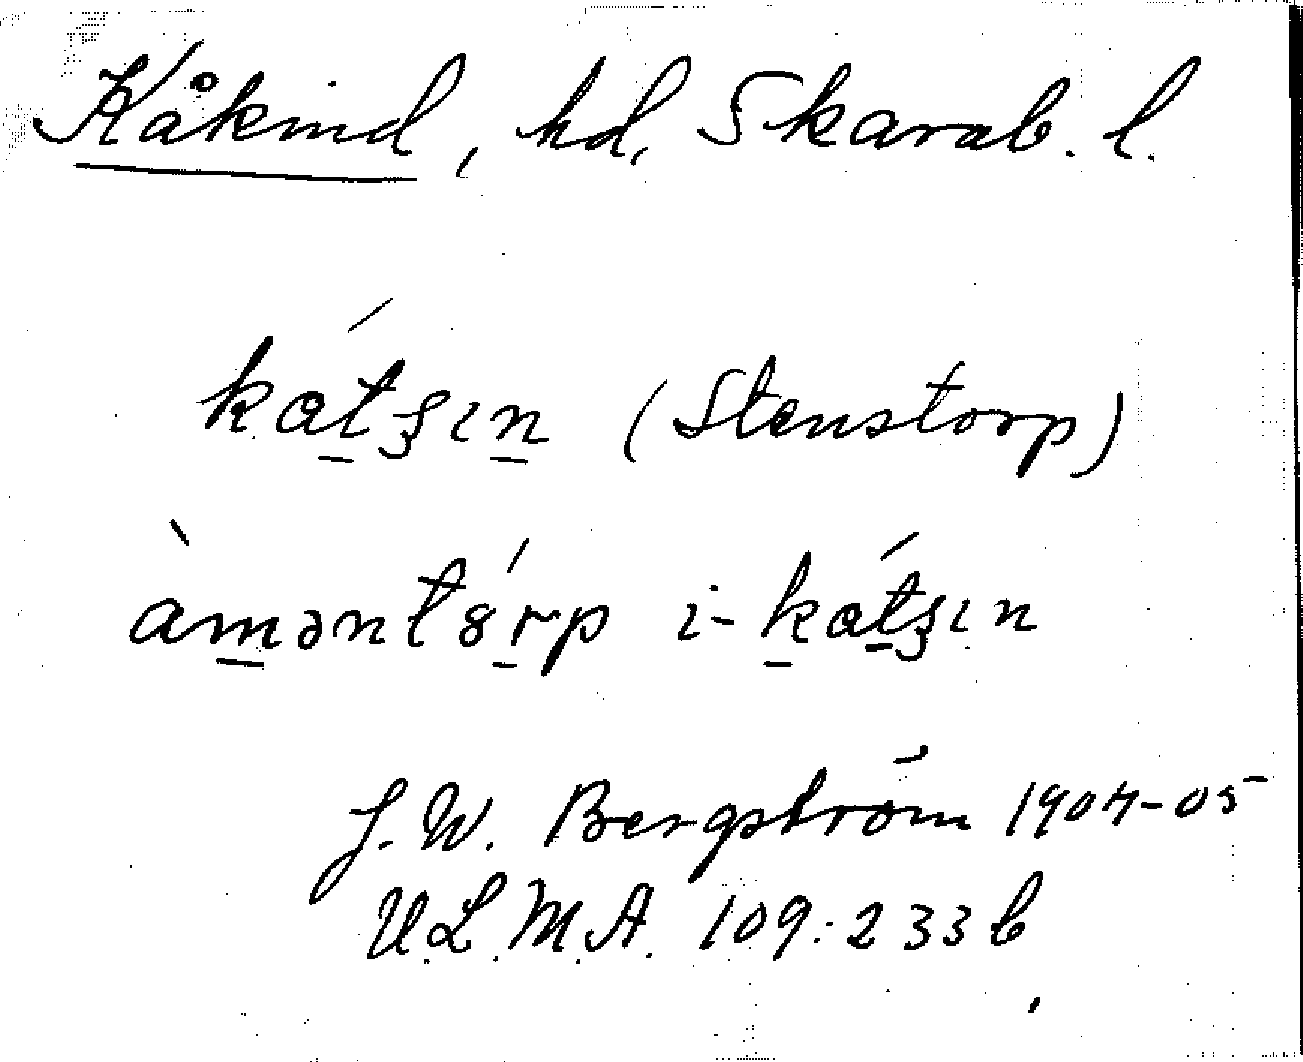 Kåkind, hd, Skarab. l.
kátʒın (Stenstorp)
àmənt8́rp i-kátʒın
J. W. Bergström 1904-05
U.L.M.A. 109:233 b